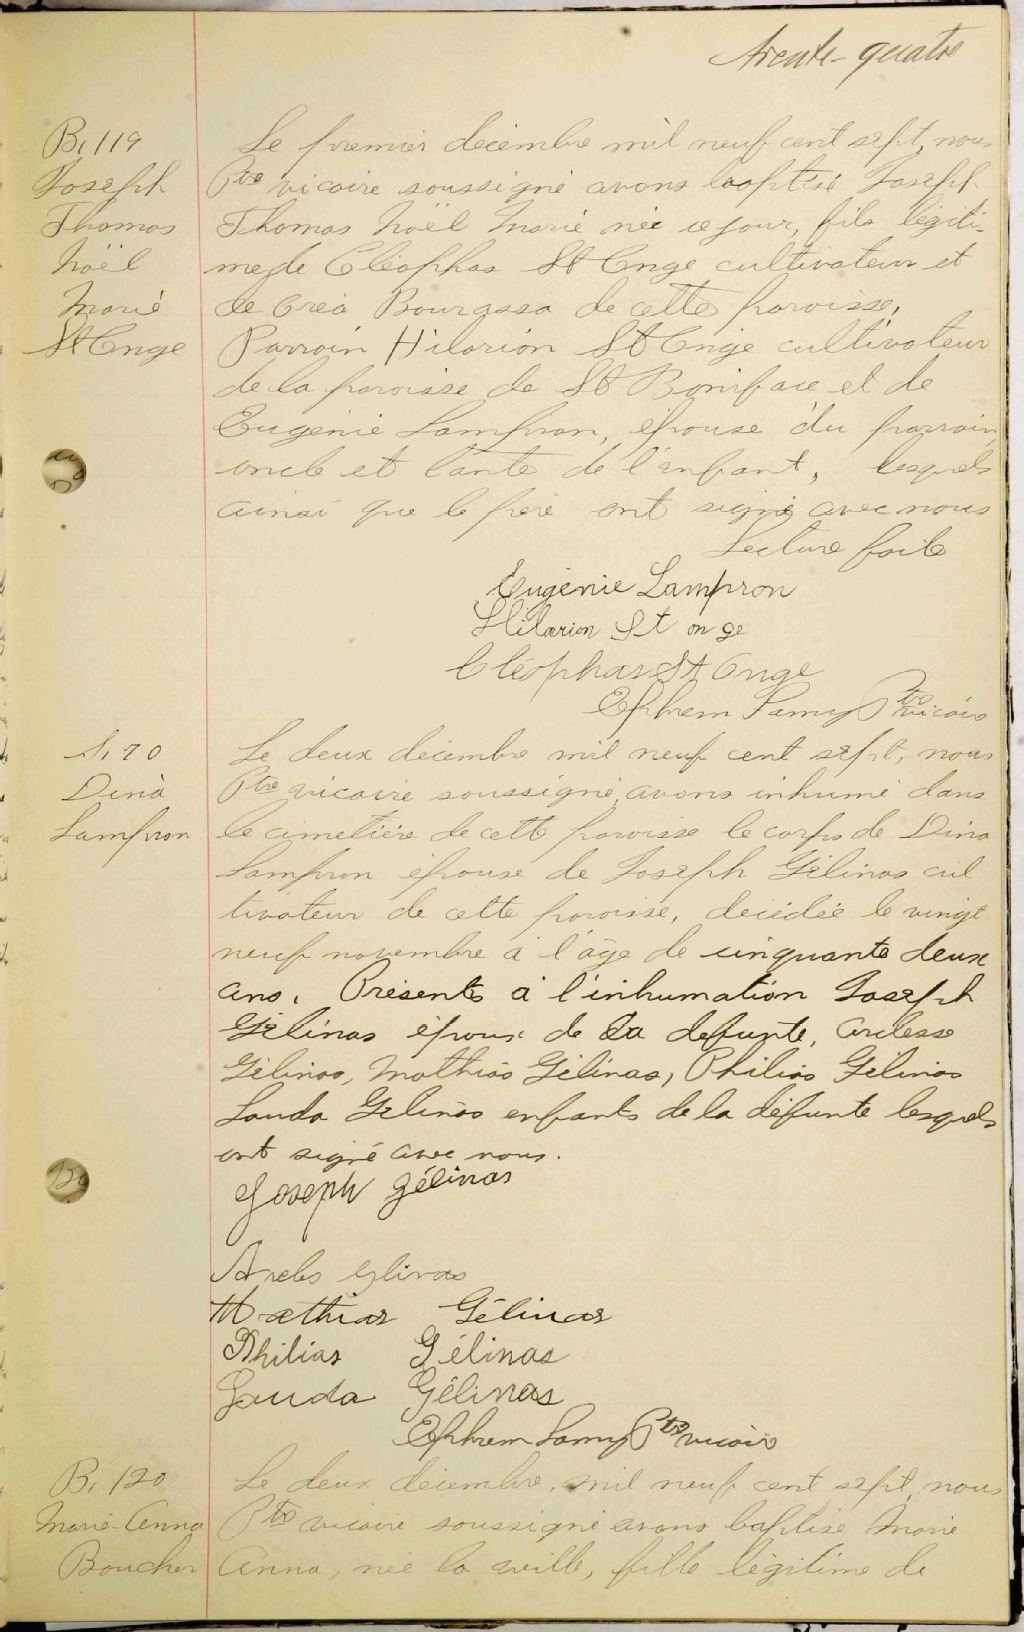 trente-quatre
B. 119
Joseph
Thomas
Noël
Marie
St Onge
Le premier décembre mil neuf cent sept, nous
Ptre vicaire soussigné avons baptisé Joseph
Thomas Noël Marie née ce jour, fils légiti-
me de Cléophas St Onge cultivateur et
de Bourassa de cette paroisse,
Parrain Hilarion St Onge cultivateur
de la paroisse de St Boniface et de
Eugénie Lampron, épouse du parrain,
oncle et tante de l'enfant, lesquels
ainsi que le père ont signé avec nous
Lecture faite
Eugénie Lampron
Hilarion St onge
Cléophas St Onge
Ephrem Lamy Ptre vicaire
S. 70
Dina
Lampron
Le deux décembre mil neuf cent sept, nous
Ptre vicaire soussigné, avons inhumé dans
le cimetière de cette paroisse le corps de Dina
Lampron épouse de Joseph Gélinas cul
tivateur de cette paroisse, décédée le vingt
neuf novembre à l'âge de cinquante deux
ans. Présents à l'inhumation Joseph
Gélinas époux de la défunte,
Gélinas, Mathias Gélinas, Philias Gélinas
Gélinas enfants de la défunte lesquels
ont signé avec nous.
Joseph Gélinas
Mathias Gélinas
Philias Gélinas
Gélinas
Ephrem Lamy Ptre vicaire
B. 120
Marie-Anna
Boucher
Le deux décembre, mil neuf cent sept, nous
Ptre vicaire soussigné avons baptisé Marie
Anna, née la veille, fille légitime de